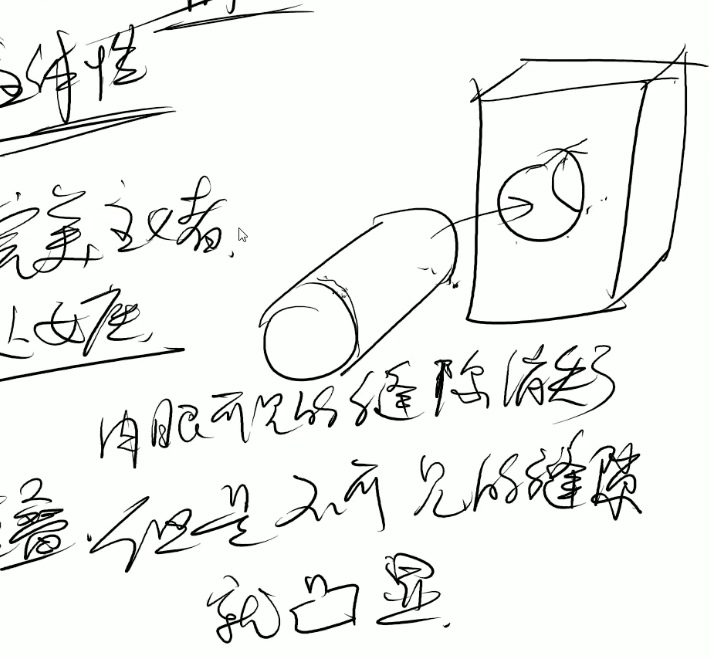 体性
完美主义者.
处女座
肉眼可见的缝隙消失了
但是不可见的缝隙
就凸显.